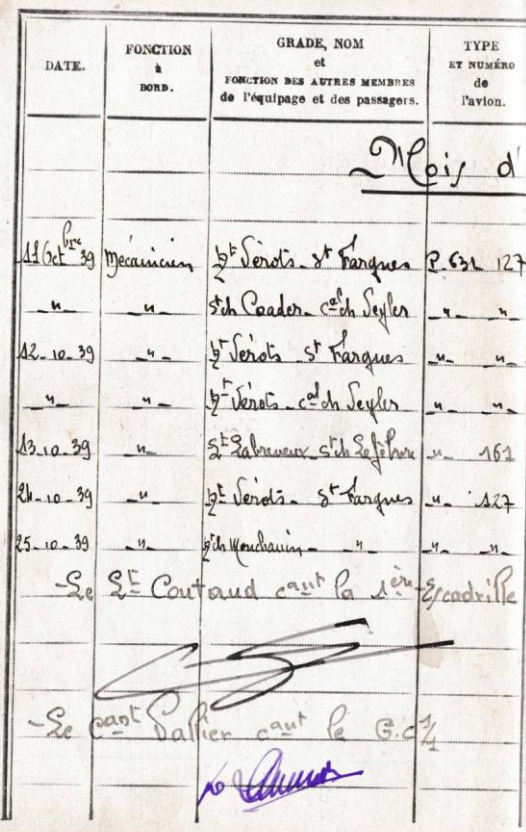 DATE. FONCTION à BORD. GRADE, NOM et FONCTION DES AUTRES MEMBRES de l'équipage et des passagers. TYPE ET NUMÉRO de l'avion.
Mois d'
11 Octbre 39 Mécanicien Lt Vérots - St Fargues P. 631 127
-"- -"- St ch Coader - cal ch Seyler -"- -"-
12-10-39 -"- Lt Vérots St Fargues -"- -"-
-"- -"- Lt Vérots - cal ch Seyler -"- -"-
13-10-39 -"- St ch Lefebvre -"- 161
24-10-39 -"- Lt Vérots - St Fargues -"- 127
25-10-39 -"- -"- -"- -"-
-Le Lt Coutaud cant la 1ère Escadrille
-Le cant cant le G.C 1/1